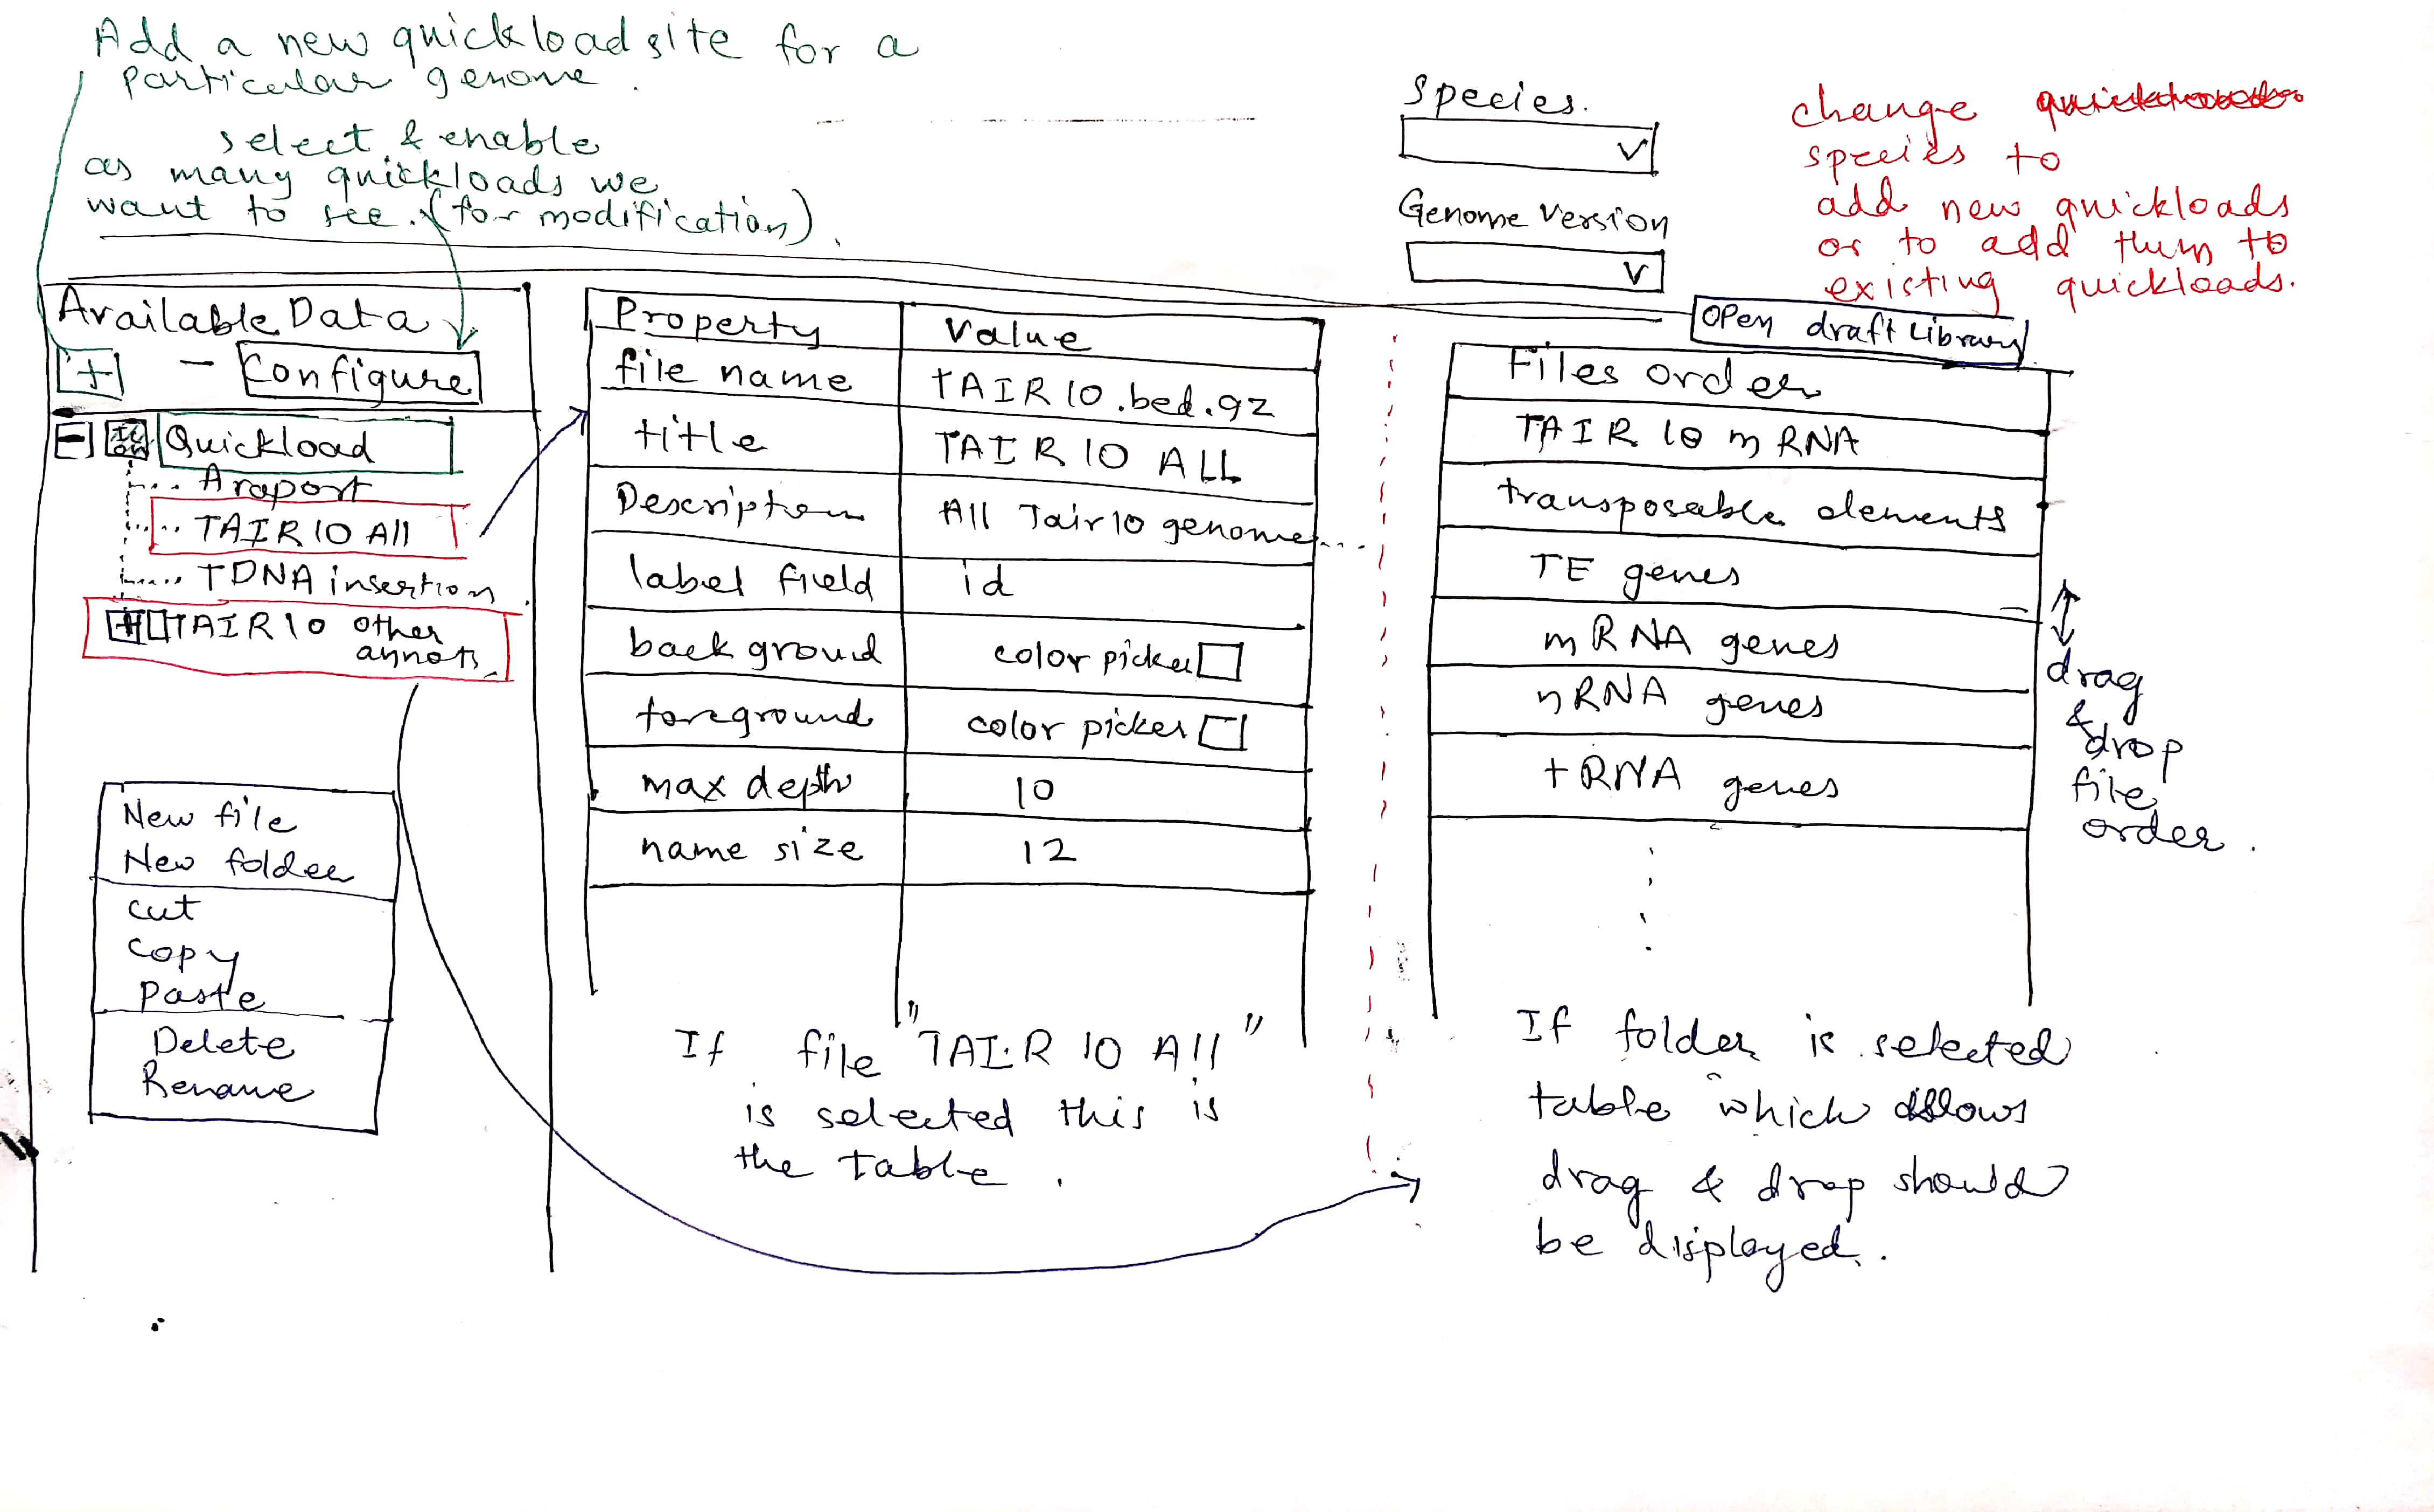 Add a new quickload site for a
particular genome.
select & enable
as many quickloads we
want to see. (for modification).
Species.
V
Genome Version
V
change
species to
add new quickloads
or to add them to
existing quickloads.
Open draft Library
Available Data
+ - Configure
- Icon Quickload
Araport
TAIR10 All
TDNA insertion
+ TAIR10 other
annots
New file
New folder
cut
copy
paste
Delete
Rename
Property Value
file name TAIR10.bed.gz
title TAIR10 ALL
Description All Tair10 genome...
label field id
background color picker
foreground color picker
max depth 10
name size 12
If file "TAIR 10 All"
is selected this is
the table.
Files order
TAIR10 mRNA
transposable elements
TE genes
mRNA genes
nRNA genes
tRNA genes
drag
&
drop
file
order.
If folder is selected
table which allows
drag & drop should
be displayed.